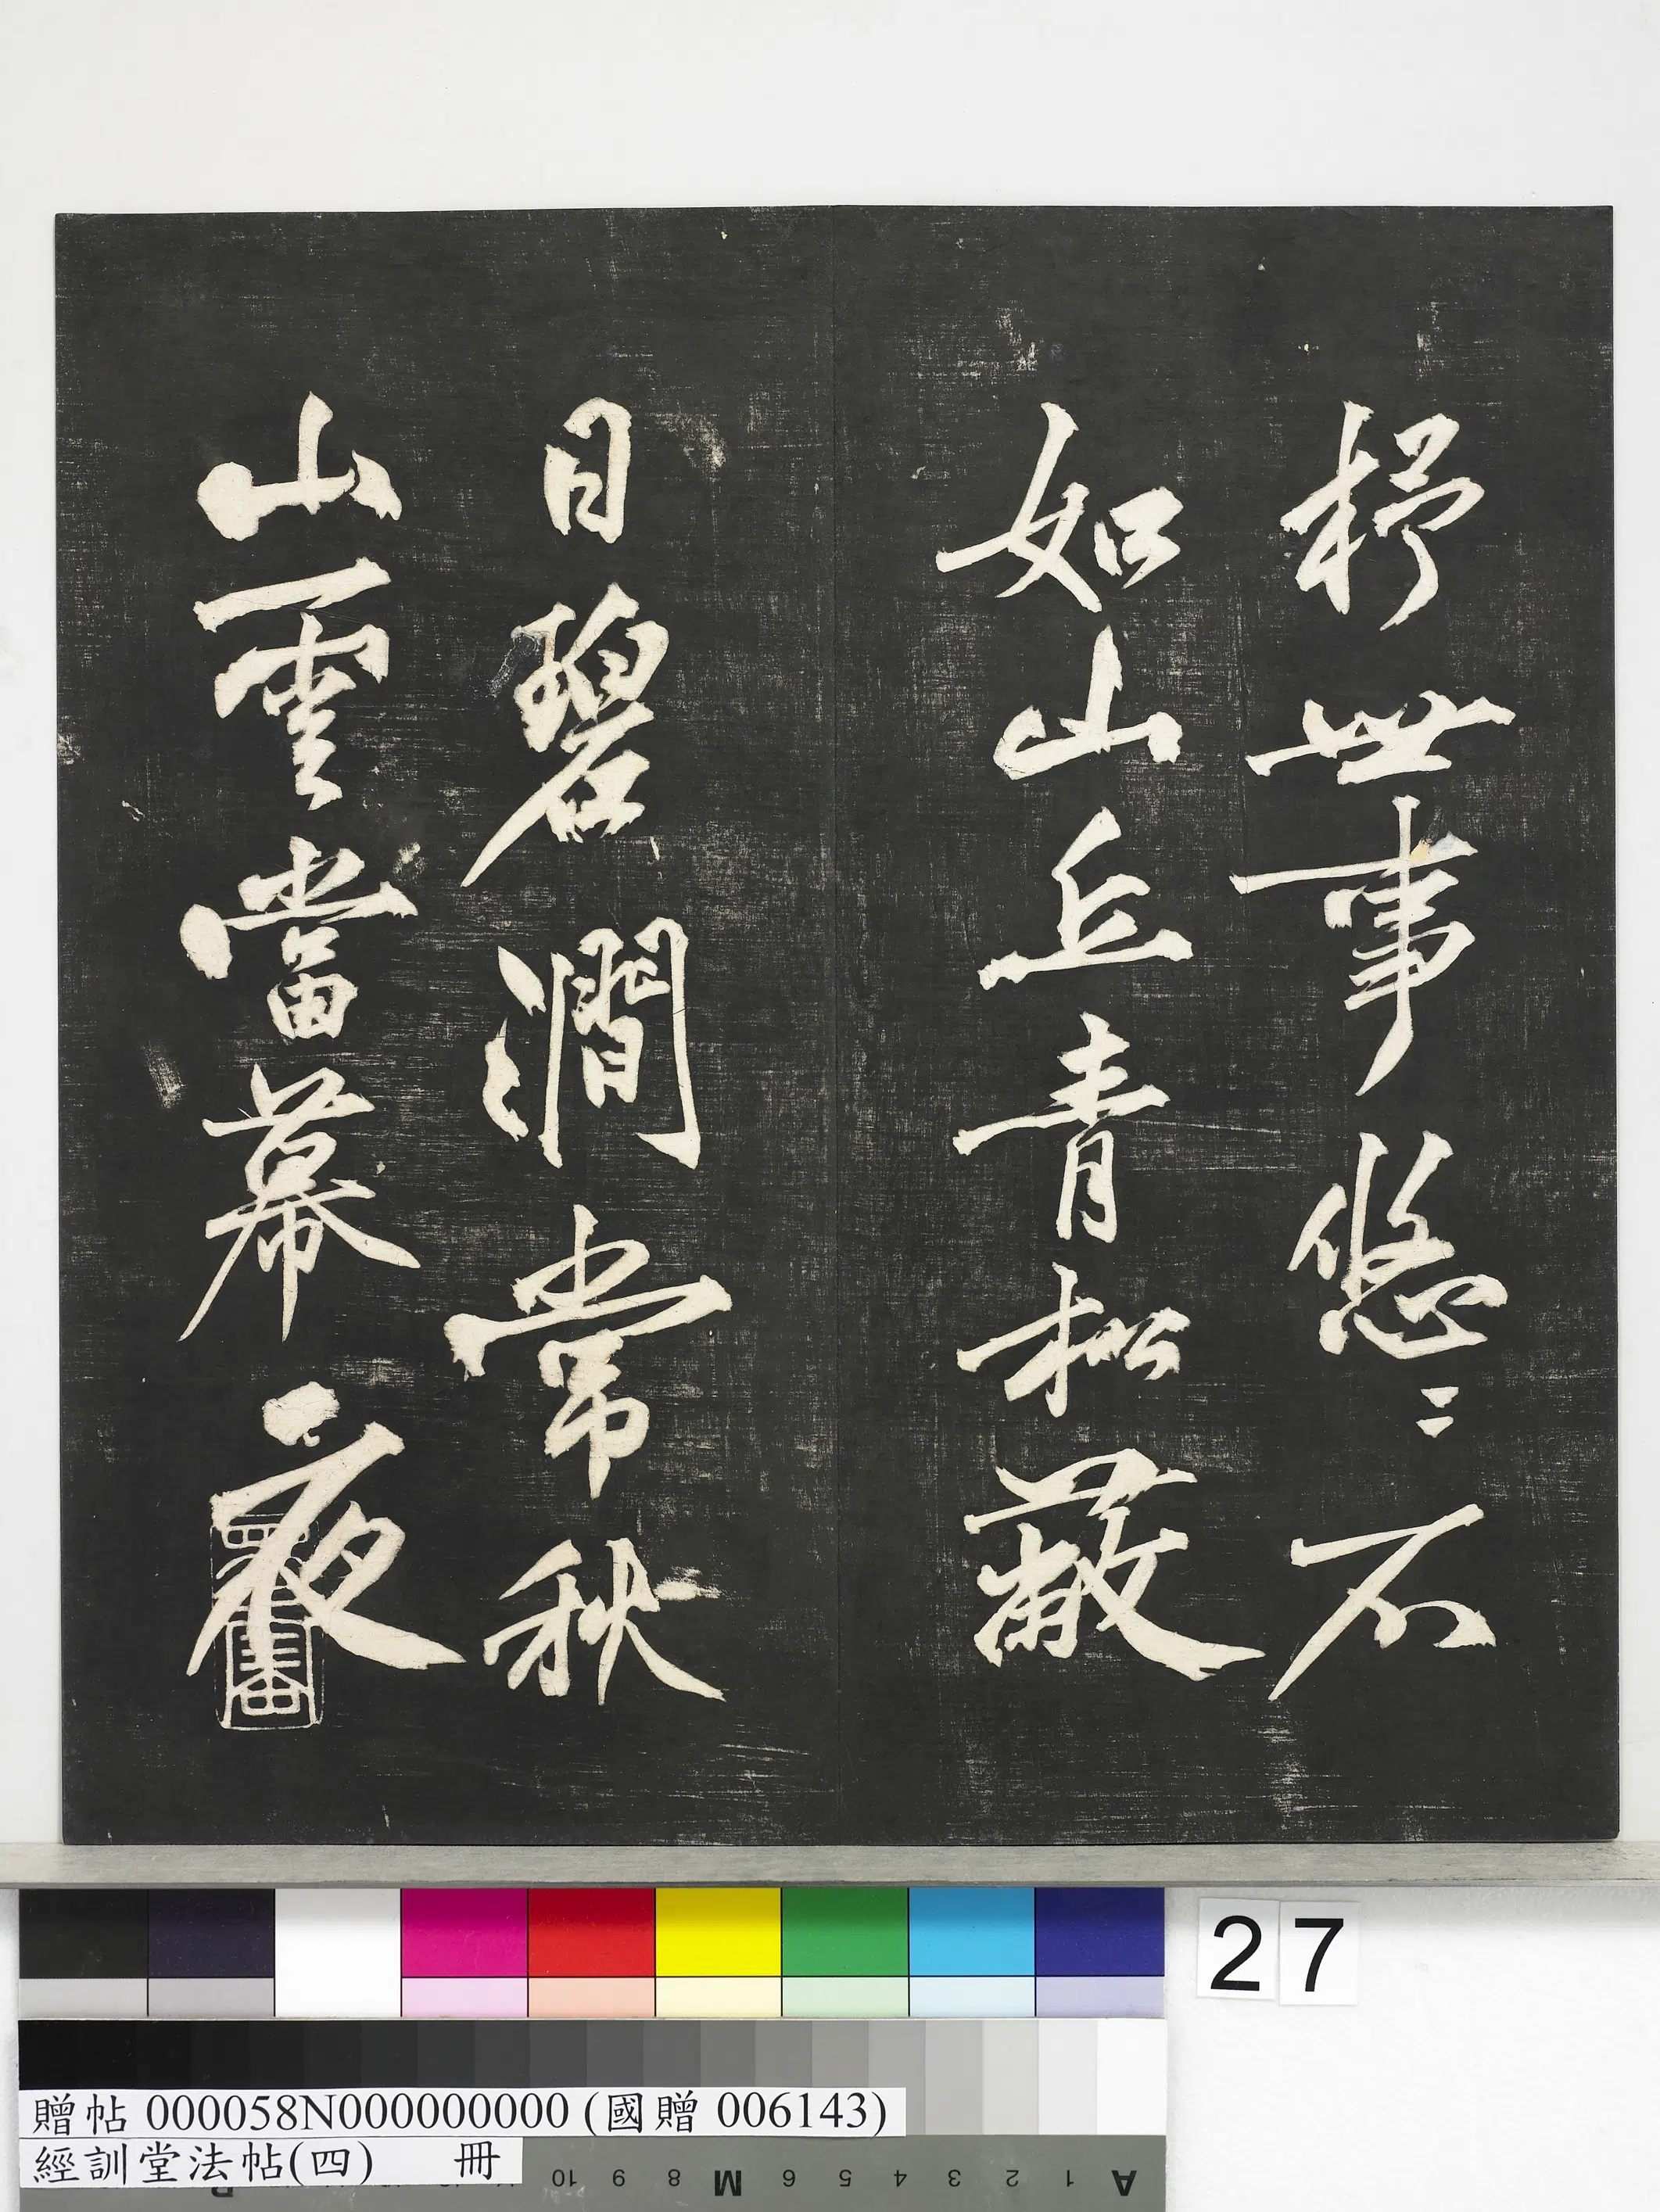 杼世事悠〻不
如山丘青松蔽
日碧澗常秋
山雲當幕夜
27
贈帖 000058N000000000 (國贈 006143)
經訓堂法帖(四) 冊
10 9 8 M 6 5 4 3 2 1 A